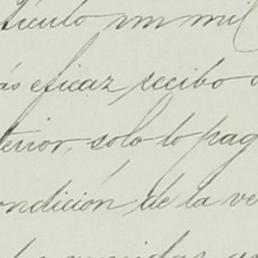 tículo un mil
ás eficaz recibo
terior, solo lo pag
ondición de la ve